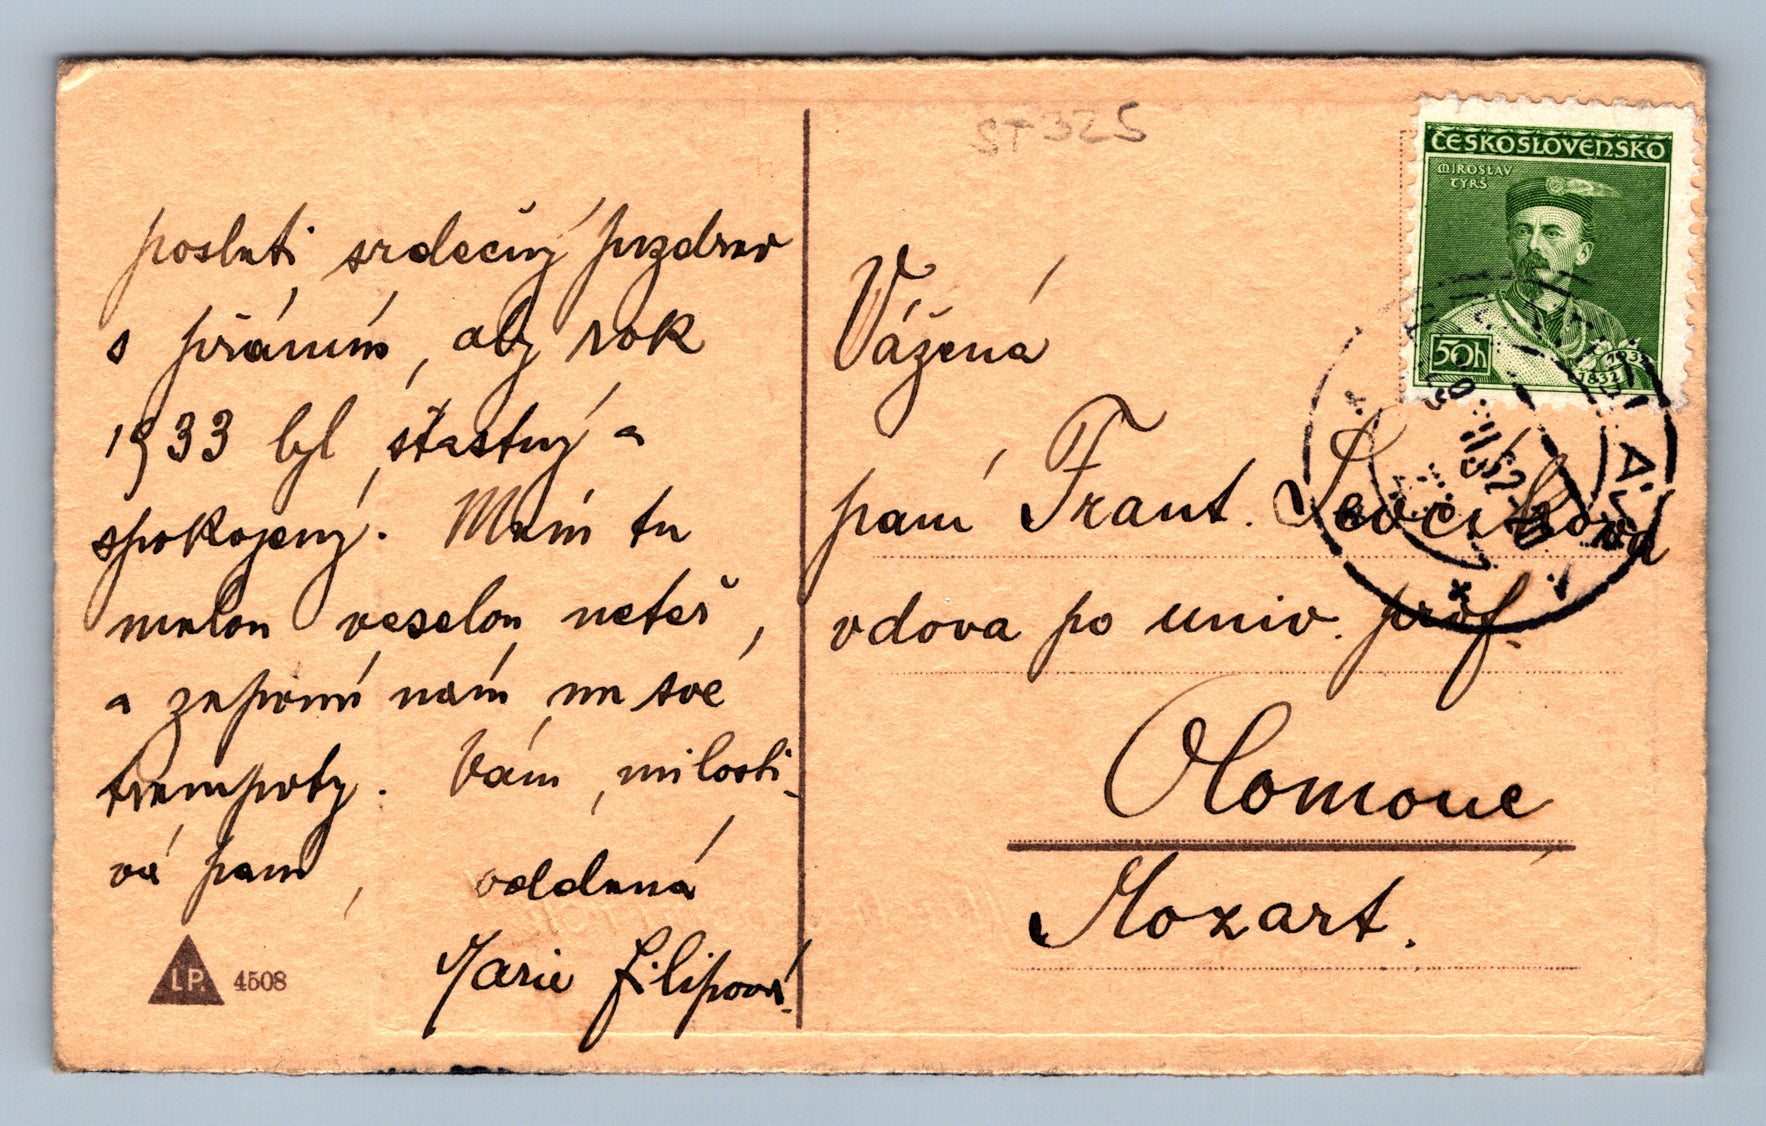 ST 325
ČESKOSLOVENSKO
MIROSLAV
TYRŠ
50h
1932
1832
poslati srdečný pozdrav
s přáním, aby rok
1933 byl šťastný a
spokojený. Mám tu
malou veselou neteř,
a zapomní nám na své
trampoty. Vám, milosti-
vá paní, oddaná
Marie Filipová.
LP. 4508
Vážená
paní Frant. Ševčíková
vdova po univ. prof.
Olomouc
Mozart.